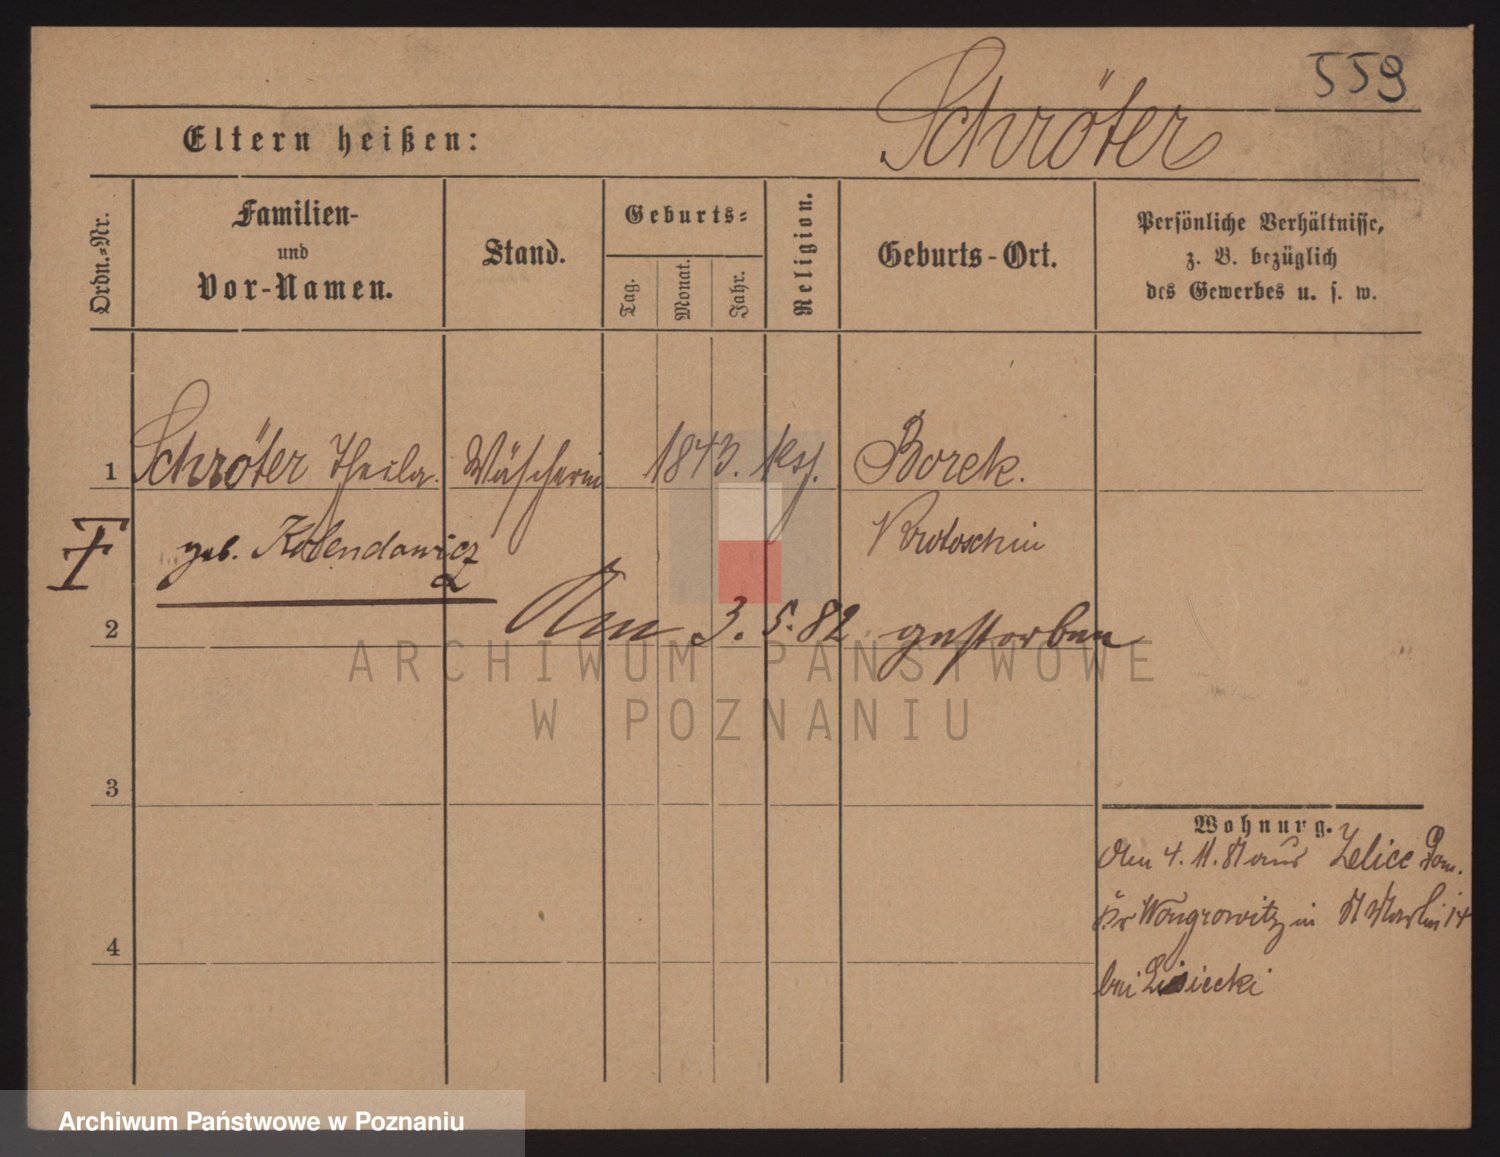 559
Schröter
Eltern heißen:
Ordn.-Nr.
Familien-
und
Vor-Namen.
Stand.
Geburts-
Tag.
Monat.
Jahr.
Religion.
Geburts-Ort.
Persönliche Verhältnisse,
z. B. bezüglich
des Gewerbes u. s. w.
1 Schröter Thecla. Wäscherin 1843. Borek.
geb. Kolendowicz Krotoschin
2 Am 3. 5. 82 gestorben
ARCHIWUM PAŃSTWOWE
W POZNANIU
3
Wohnung.
den 4. 11. 81 aus Zelice Dom.
Kr Wongrowitz in St Martin 14
4
bei Lisiecki
Archiwum Państwowe w Poznaniu